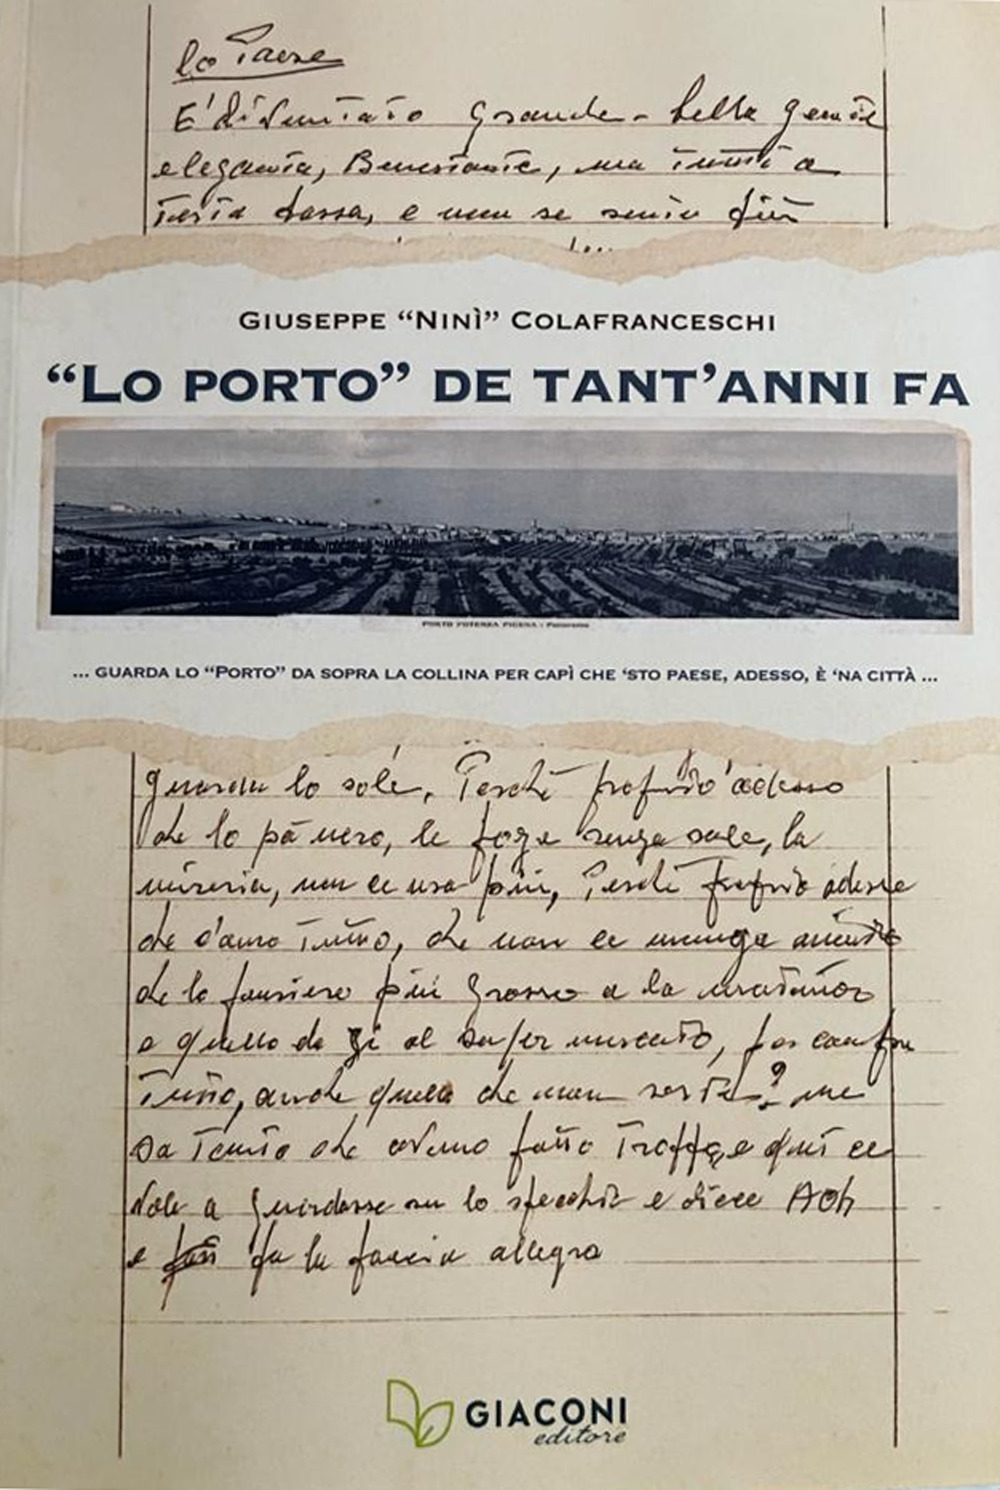 Lo Paese
E' diventato Grande - bella gente
elegante, Benestante, ma tutti a
testa bassa, e non se sente più
GIUSEPPE “NINÌ” COLAFRANCESCHI
“LO PORTO” DE TANT’ANNI FA
PORTO POTENZA PICENA - Panorama
... GUARDA LO “PORTO” DA SOPRA LA COLLINA PER CAPÌ CHE ‘STO PAESE, ADESSO, È ‘NA CITTÀ ...
lo sole. Perché proprio adesso
che lo pà nero, le senza sale, la
miseria, non ce più, Perché proprio adesso
che tutto, che non ce manga
che lo più Grosso a la
e quello de gi al super mercato,
Tutto, anche quello che non serve? me
sa Tanto che fatto Troppo e qui ce
vole a Guardasse su lo specchio e dicce AOh
e fa la faccia allegra
GIACONI
editore